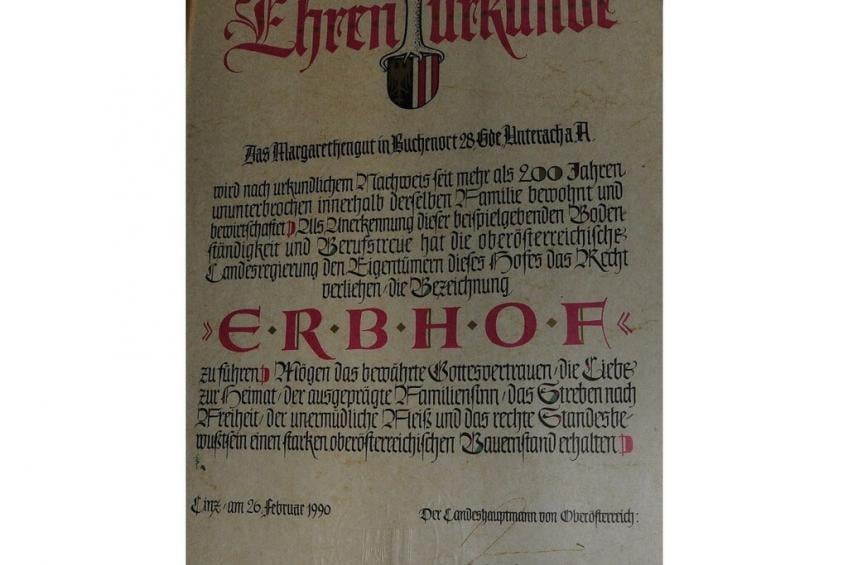 Ehrenurkunde
Das Margarethengut in Buchenort 28 Gde. Unterach a. A.
wird nach urkundlichem Nachweis seit mehr als 200 Jahren
ununterbrochen innerhalb derselben Familie bewohnt und
bewirtschaftet. Als Anerkennung dieser beispielgebenden Boden-
ständigkeit und Berufstreue hat die oberösterreichische
Landesregierung den Eigentümern dieses Hofes das Recht
verliehen, die Bezeichnung
»E·R·B·H·O·F«
zu führen. Mögen das bewährte Gottesvertrauen, die Liebe
zur Heimat, der ausgeprägte Familiensinn, das Streben nach
Freiheit, der unermüdliche Fleiß und das rechte Standesbe-
wußtsein einen starken oberösterreichischen Bauernstand erhalten.
Linz, am 26. Februar 1990
Der Landeshauptmann von Oberösterreich: